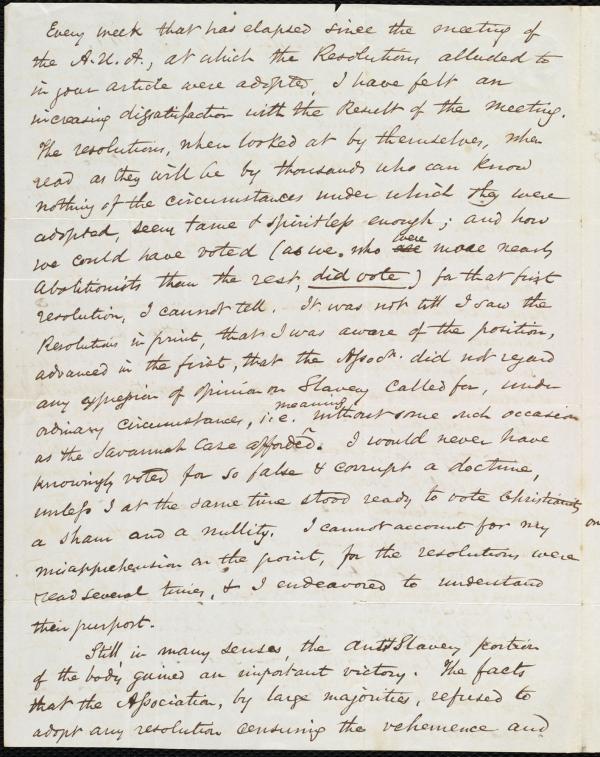 Every week that has elapsed since the meeting of
the A.U.A., at which the Resolutions alluded to
in your article were adopted, I have felt an
increasing dissatisfaction with the Result of the meeting.
The resolutions, when looked at by themselves, when
read as they will be by thousands who can know
nothing of the circumstances under which they were
adopted, seem tame & spiritless enough; and how
we could have voted (as we, who were more nearly
Abolitionists than the rest, did vote) for that first
resolution, I cannot tell. It was not till I saw the
Resolutions in print, that I was aware of the position,
advanced in the first, that the Assocn. did not regard
any expression of opinion on Slavery called for, under
ordinary circumstances, i.e. meaning without some such occasion
as the Savannah Case afforded. I would never have
knowingly voted for so false & corrupt a doctrine,
unless I at the same time stood ready to vote Christianity
a sham and a nullity. I cannot account for my
misapprehension on the point, for the resolutions were
read several times, & I endeavored to understand
their purport.
Still, in many senses, the anti Slavery portion
of the body gained an important victory. The facts
that the Association, by large majorities, refused to
adopt any resolution censuring the vehemence and
on